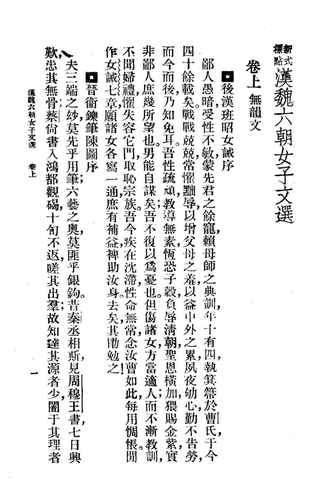 新式標點漢魏六朝女子文選
卷上 無韻文
■後漢班昭女誡序
鄙人愚暗受性不敏蒙先君之餘寵賴母師之典訓年十有四執箕箒於曹氏于今
四十餘載矣戰戰兢兢常懼黜辱以增父母之羞以益中外之累夙夜劬心勤不告勞
而今而後乃知免耳吾性疏頑教導無素恆恐子穀負辱清朝聖恩橫加猥賜金紫實
非鄙人庶幾所望也男能自謀矣吾不復以爲憂也但傷諸女方當適人而不漸教訓
不聞婦禮懼失容它門取恥宗族吾今疾在沈滯性命無常念汝曹如此每用惆悵閒
作女誡七章願諸女各寫一通庶有補益裨助汝身去矣其勖勉之
■晉衛鑠筆陳圖序
夫三端之妙莫先乎用筆六藝之奧莫匪乎銀鉤昔秦丞相斯見周穆王書七日興
歎患其無骨蔡尙書入鴻都觀碣十旬不返嗟其出羣故知達其源者少闇于其理者
漢魏六朝女子文選 卷上
一